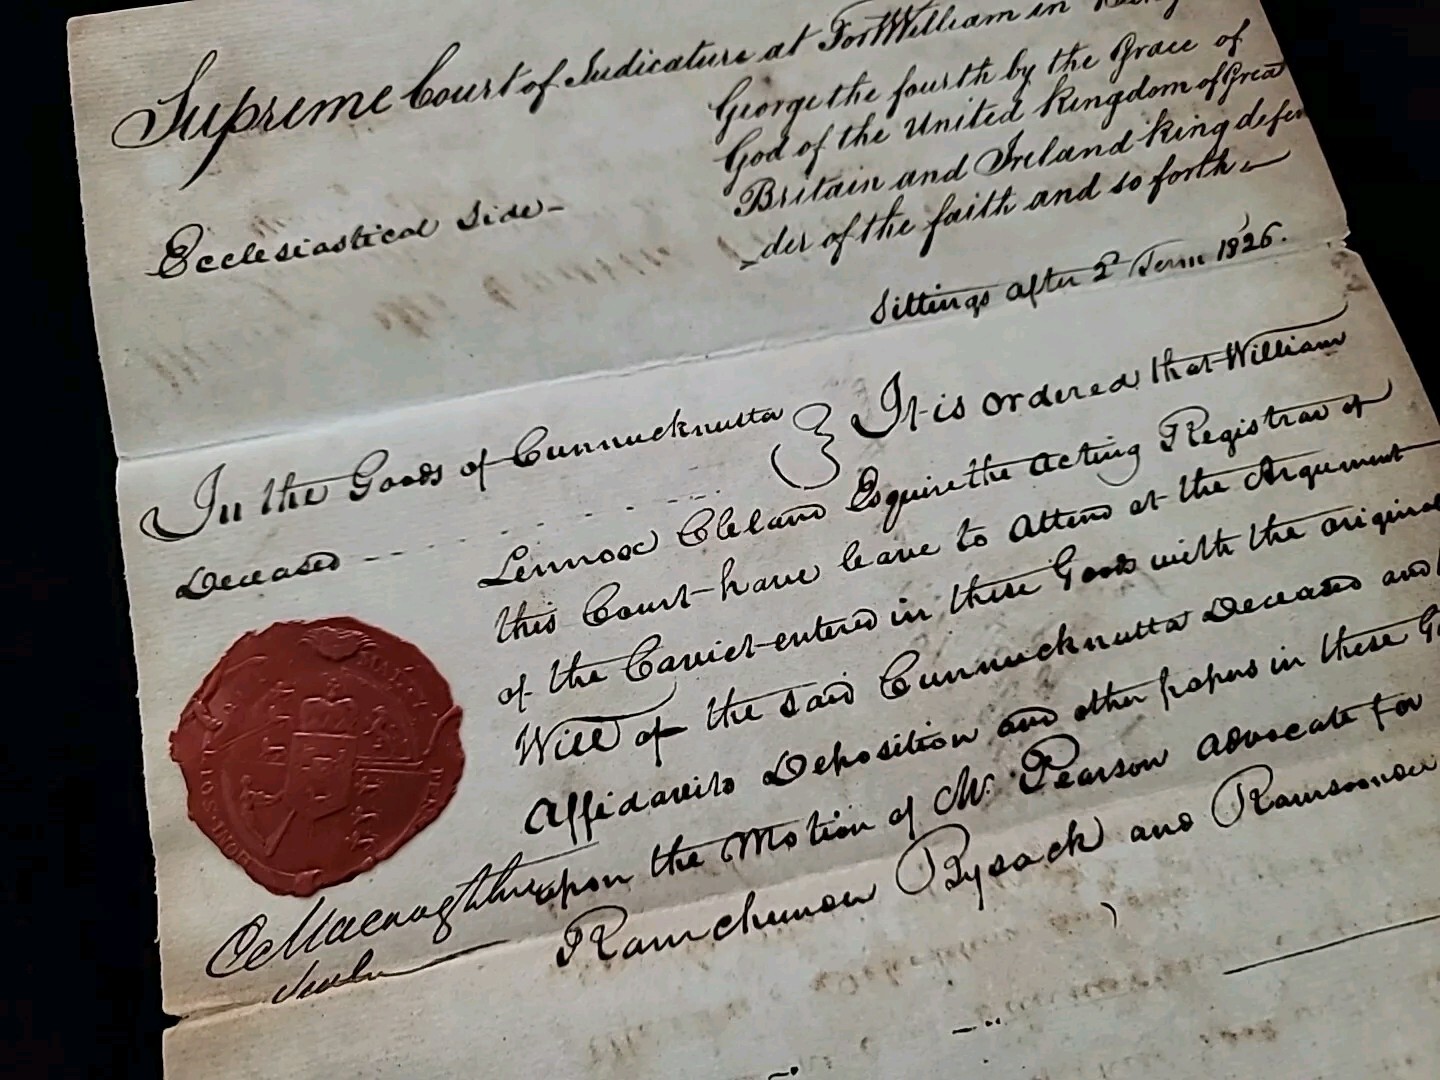 Supreme Court of Judicature at Fort William in
George the fourth by the Grace of
God of the United Kingdom of Grea
Britain and Ireland King defen
der of the faith and so forth
Ecclesiastical Side -
Sittings after 2d Term 1826.
In the Goods of Cunnucknutta
Deceased
It is ordered that William
Lennox Cleland Esquire the Acting Registrar of
this Court have leave to Attend at the Argument
of the Caviet entered in these Goods with the original
Will of the said Cunnucknutta Deceased and
Affidavits Deposition and other papers in these Go
upon the Motion of Mr. Pearson Advocate for
Ramchunder Bysack and
HONI SOIT